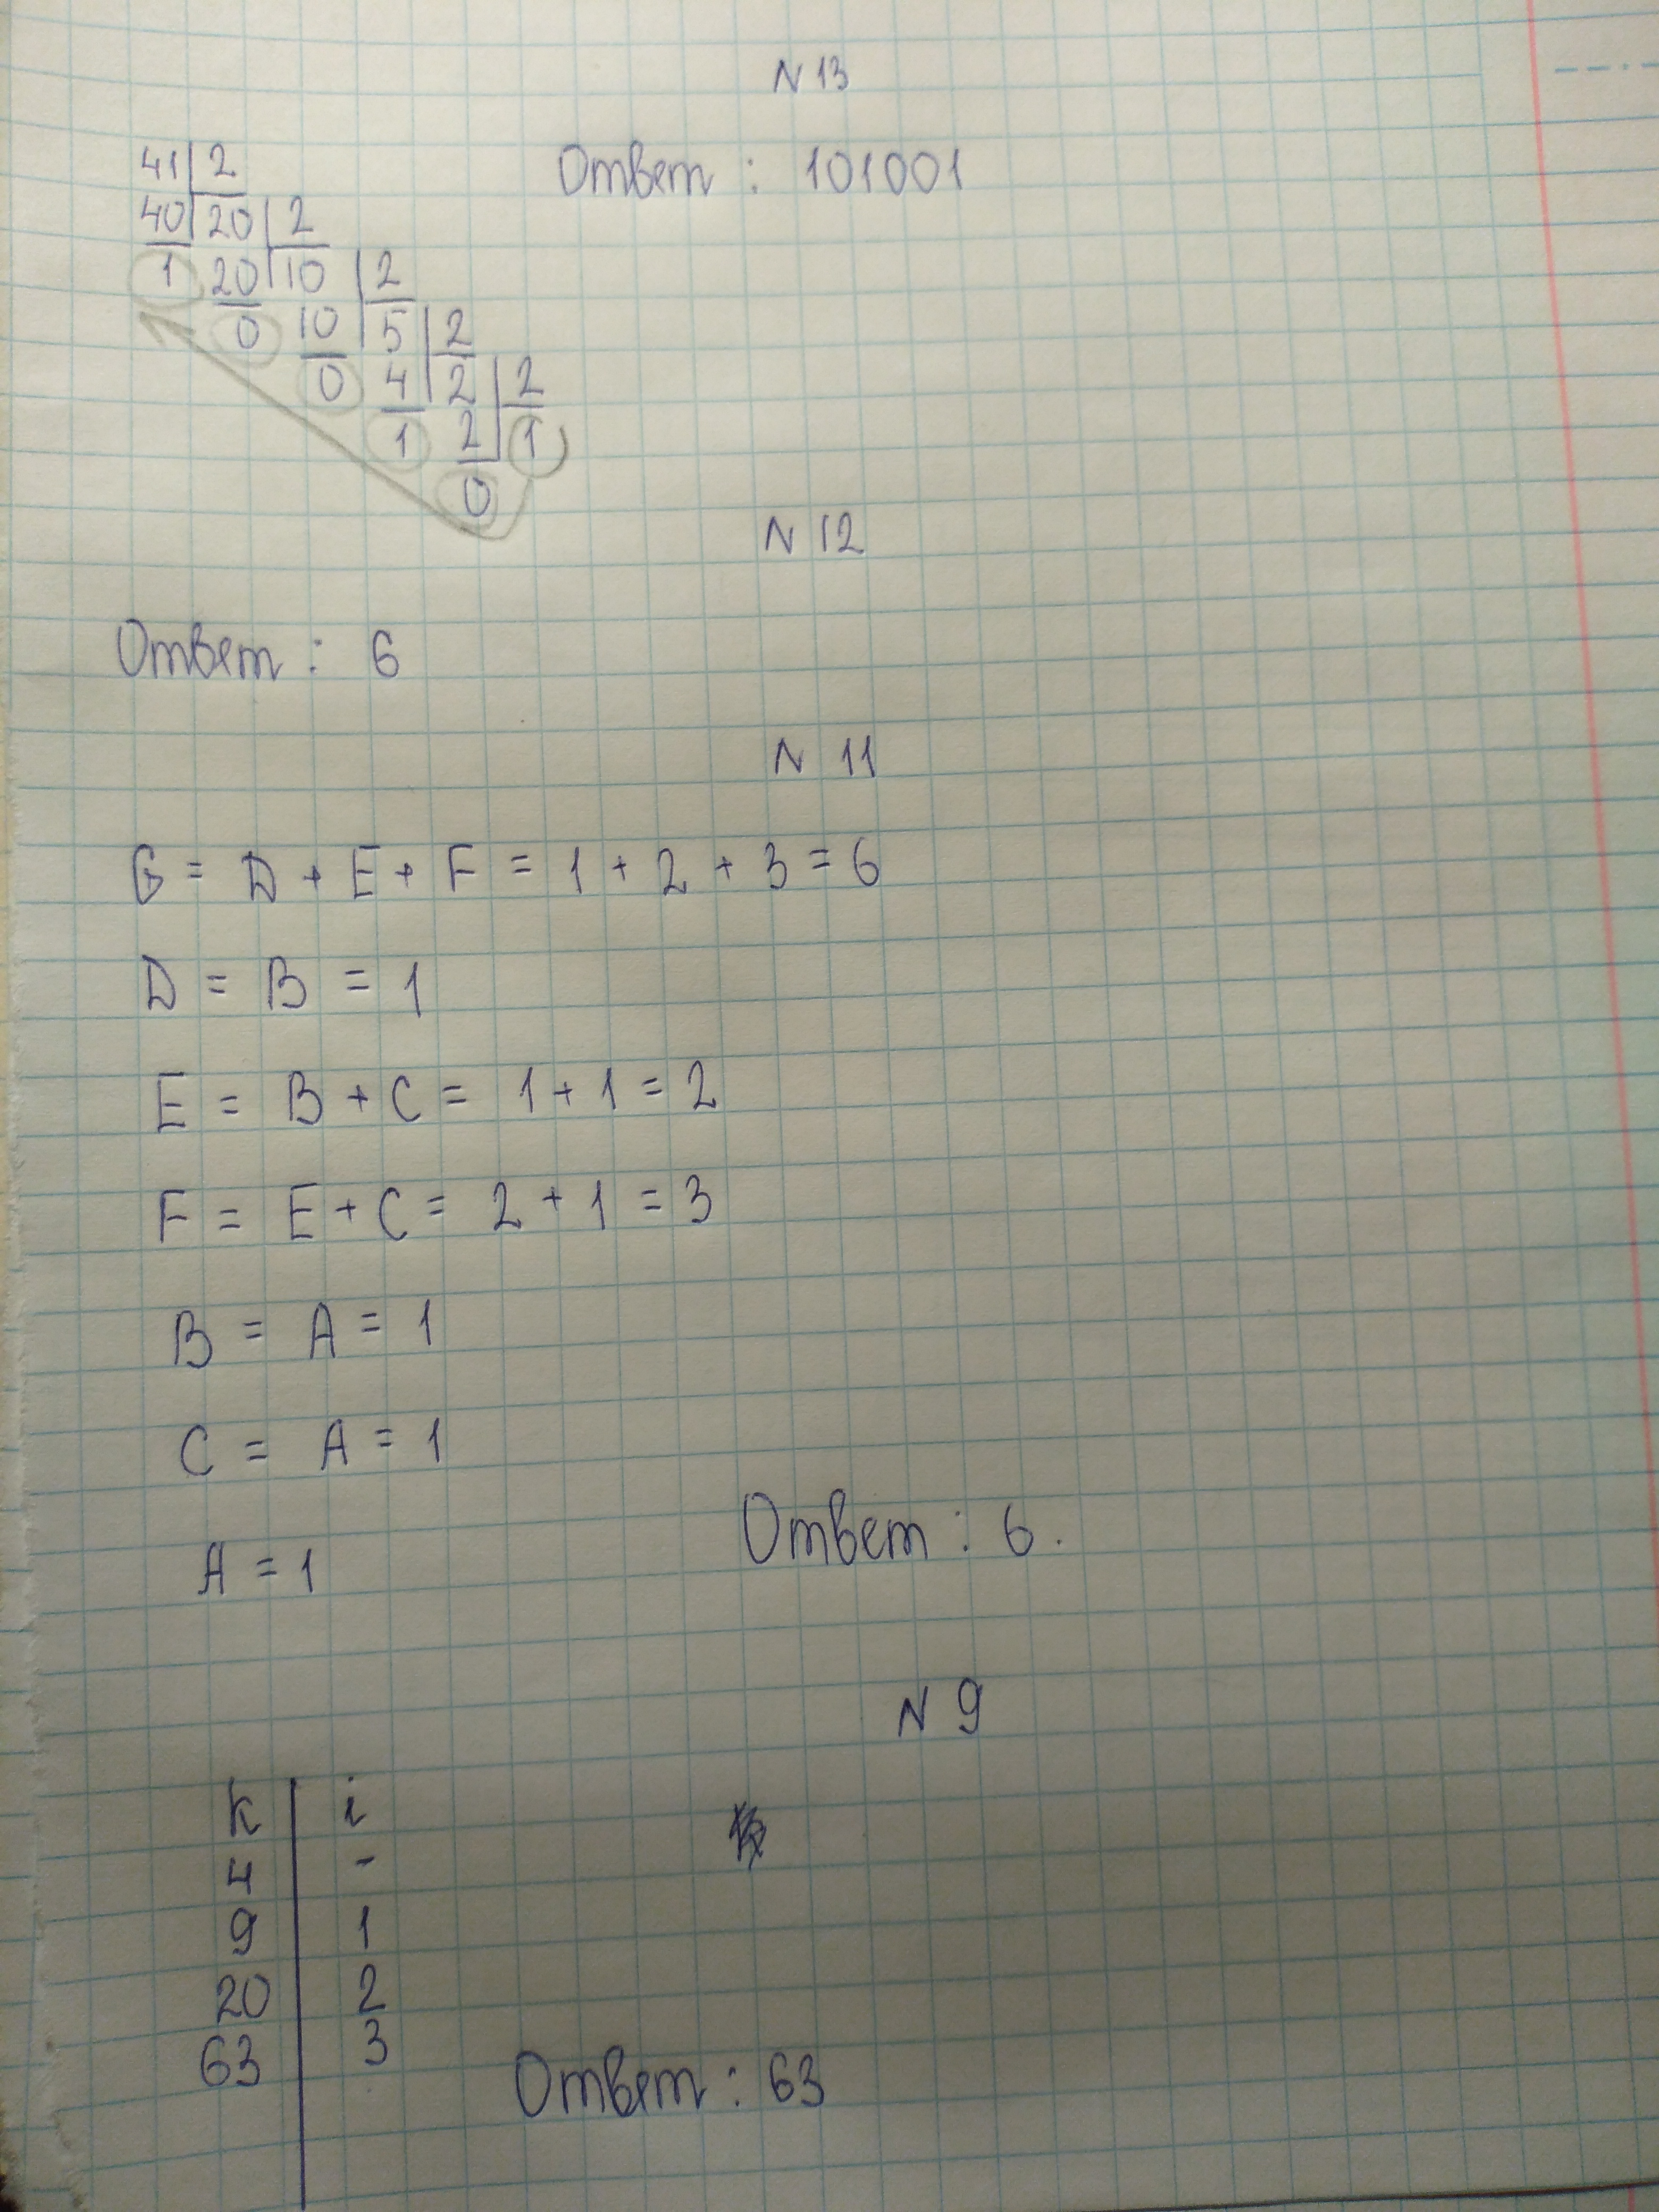 N 13
41 2
Ответ : 101001
40 20 2
1 20 10 2
0 10 5 2
0 4 2 2
1 2 1
0
N 12
Ответ : 6
N 11
G = D + E + F = 1 + 2 + 3 = 6
D = B = 1
E = B + C = 1 + 1 = 2
F = E + C = 2 + 1 = 3
B = A = 1
C = A = 1
Ответ : 6.
A = 1
N 9
k i
4 -
9 1
20 2
63 3
Ответ : 63